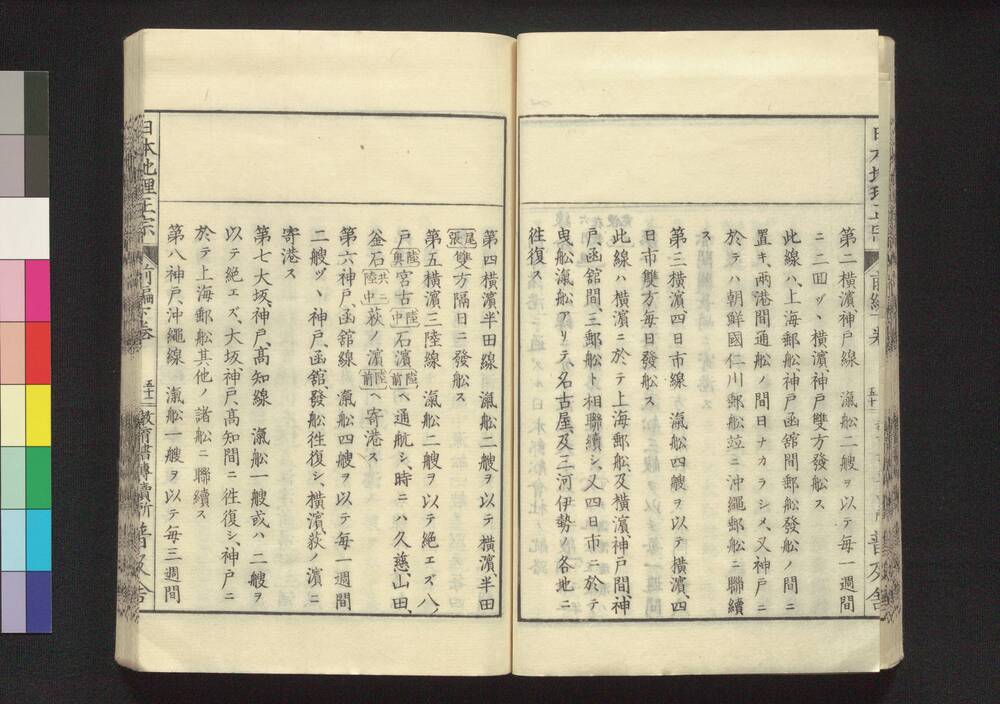 第二橫濱、神戸線　滊舩二艘ヲ以テ每一週間
ニ二回ヅヽ橫濱、神戸雙方發舩ス
此線ハ、上海郵舩、神戸函舘間郵舩發舩ノ間ニ
置キ、兩港間通舩ノ間日ナカラシメ、又神戸ニ
於テハ朝鮮國仁川郵舩並ニ沖繩郵舩ニ聯續
ス
第三橫濱、四日市線　滊舩四艘ヲ以テ橫濱、四
日市雙方每日發舩ス
此線ハ橫濱ニ於テ上海郵舩、及橫濱、神戸間、神
戸、函舘間、三郵舩ト相聯續シ、又四日市ニ於テ
曳舩滊舩アリテ名古屋、及三河伊勢ノ各地ニ
徃復ス
第四橫濱、半田線　滊舩二艘ヲ以テ橫濱、半田
尾張雙方隔日ニ發舩ス
第五橫濱、三陸線　滊舩二艘ヲ以テ絶エズ八、
戸陸奧宮古陸中石濱陸前ヘ通航シ、時ニハ久慈、山田、
釜石共三陸中荻ノ濱陸前ヘ寄港ス
第六神戸、函舘線　滊舩四艘ヲ以テ每一週間
二艘ヅヽ神戸、函舘、發舩徃復シ、橫濱、荻ノ濱ニ
寄港ス
第七大坂、神戸、高知線　滊舩一艘或ハ二艘ヲ
以テ絶エズ、大坂、神戸、高知間ニ徃復シ、神戸ニ
於テ上海郵舩其他ノ諸舩ニ聯續ス
第八神戸、沖繩線　滊舩一艘ヲ以テ每三週間
日本地理正宗
前編下卷
五十二
教育書專賣所
普及舍